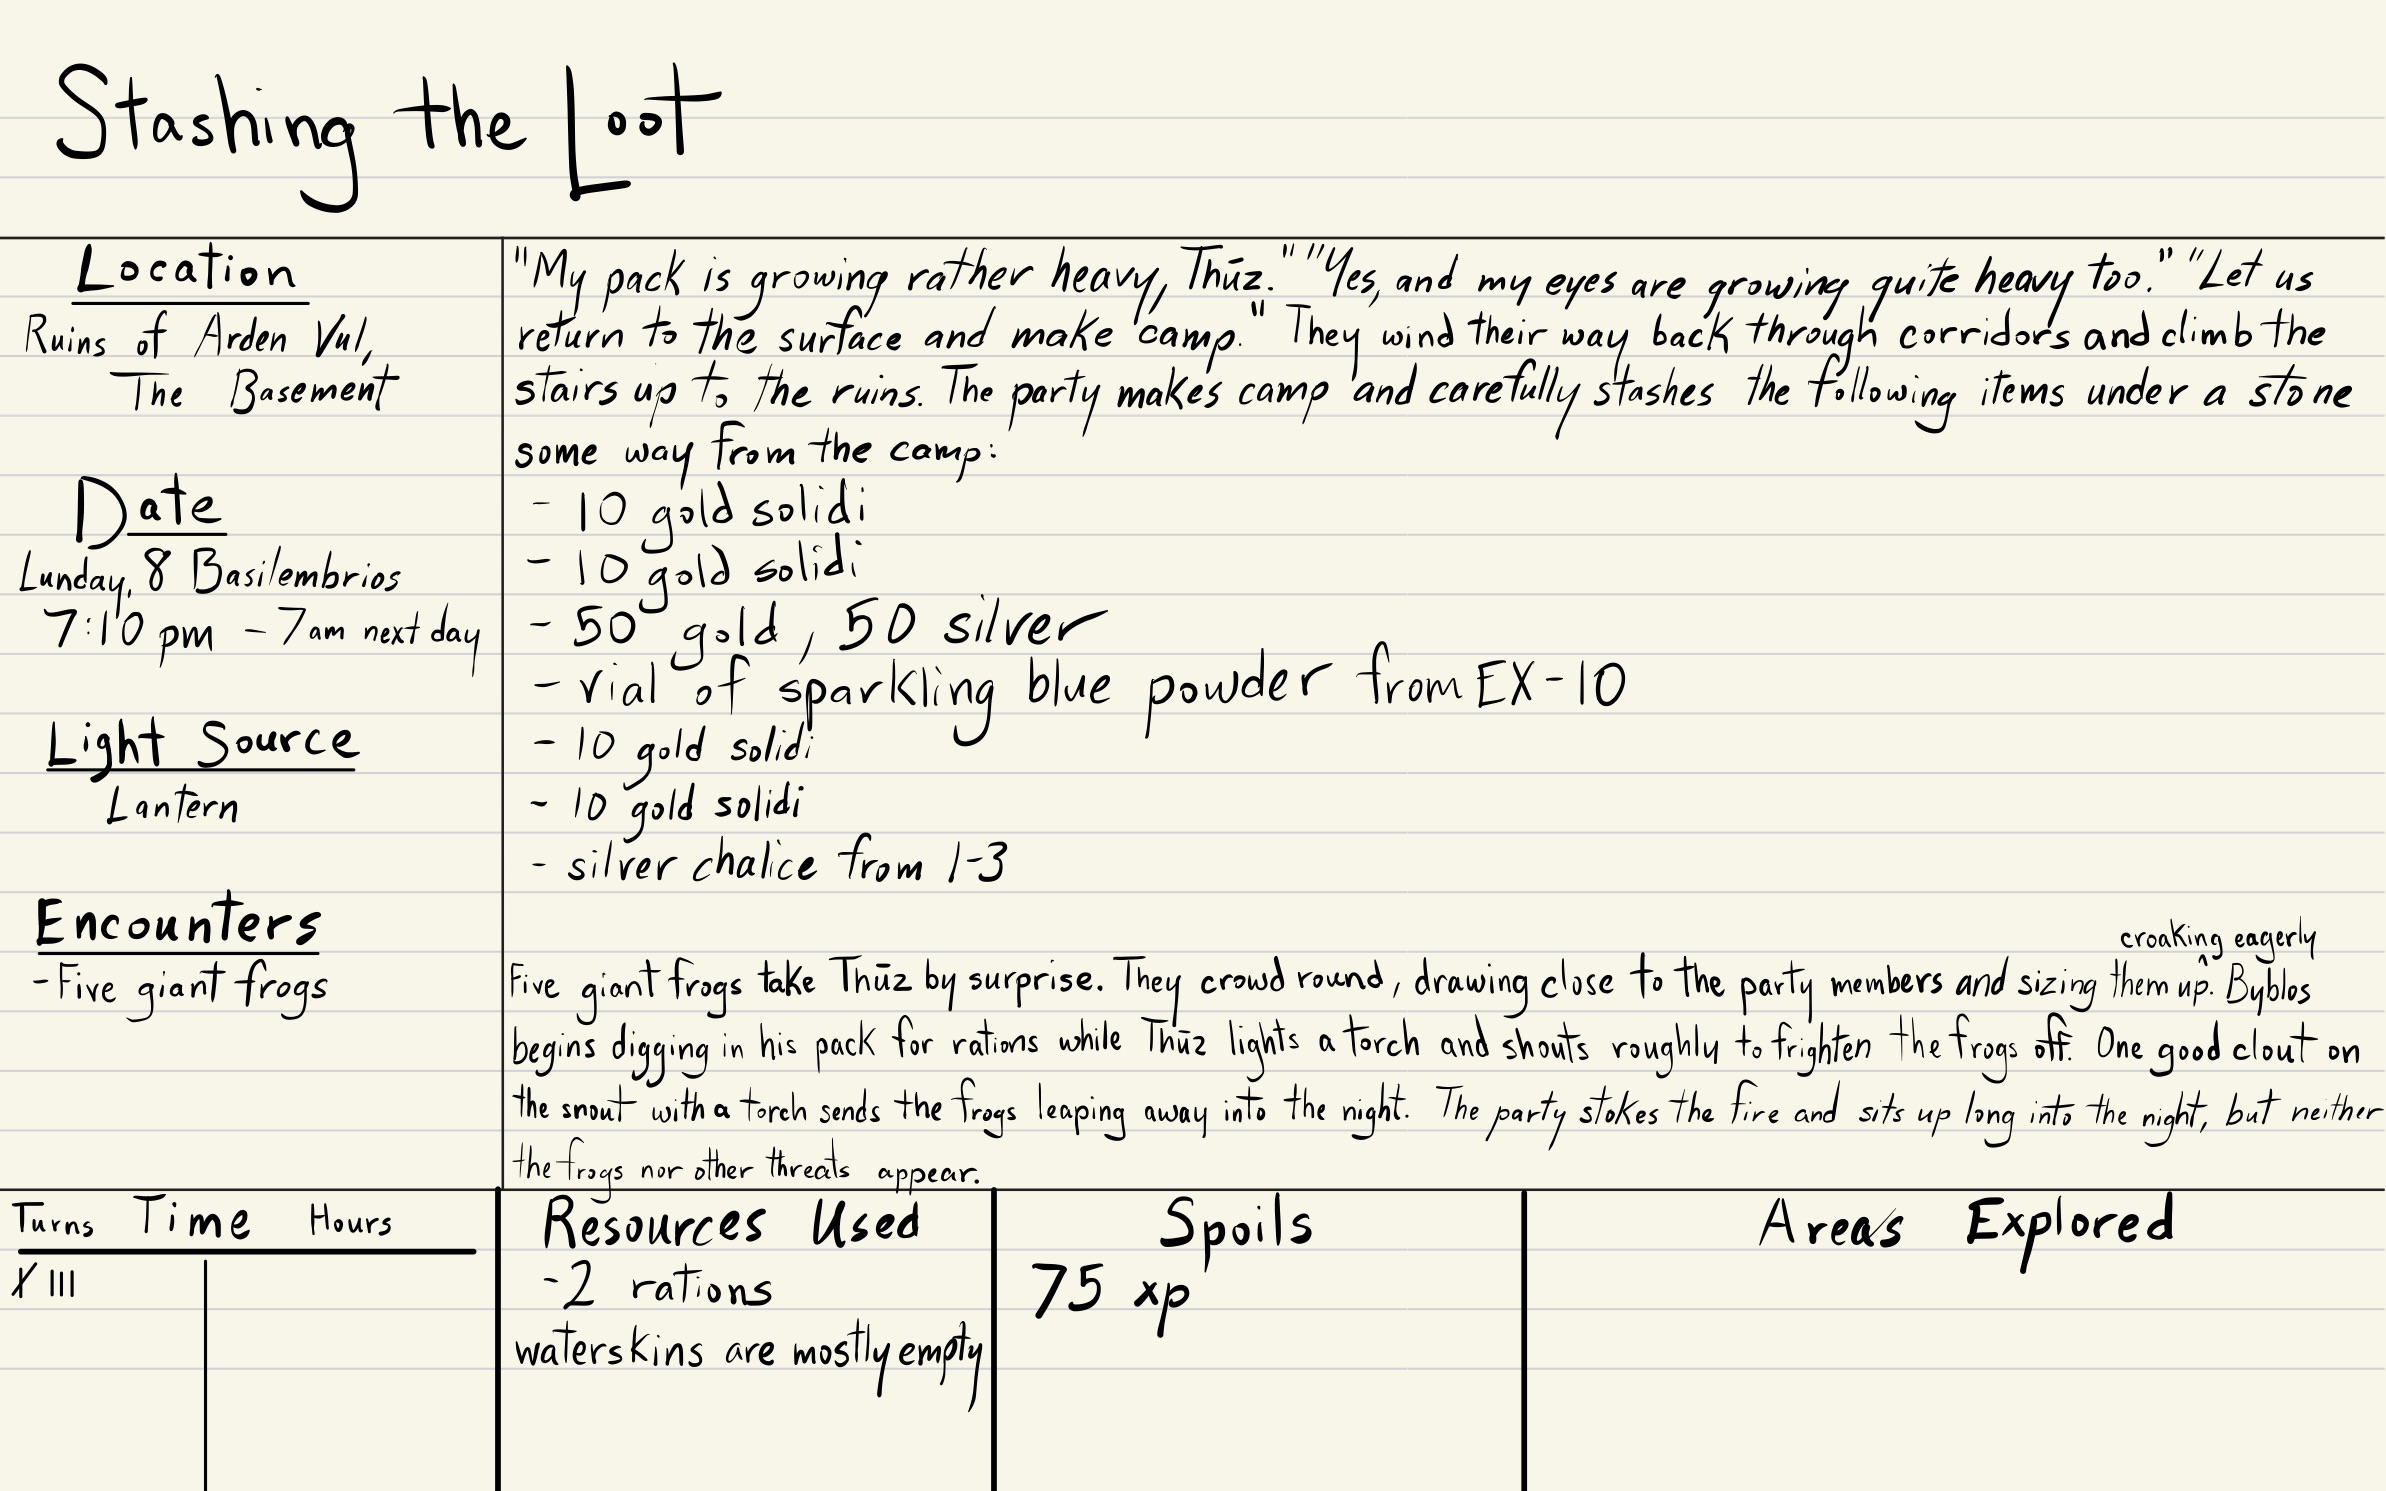 Stashing the Loot
Location
Ruins of Arden Vul,
The Basement
Date
Lunday, 8 Basilembrios
7:10 pm - 7am next day
Light Source
Lantern
Encounters
- Five giant frogs
"My pack is growing rather heavy, Thūz." "Yes, and my eyes are growing quite heavy too." "Let us
return to the surface and make camp." They wind their way back through corridors and climb the
stairs up to the ruins. The party makes camp and carefully stashes the following items under a stone
some way from the camp:
- 10 gold solidi
- 10 gold solidi
- 50 gold, 50 silver
- vial of sparkling blue powder from EX-10
- 10 gold solidi
- 10 gold solidi
- silver chalice from 1-3
croaking eagerly
Five giant frogs take Thūz by surprise. They crowd round, drawing close to the party members and sizing them up^. Byblos
begins digging in his pack for rations while Thūz lights a torch and shouts roughly to frighten the frogs off. One good clout on
the snout with a torch sends the frogs leaping away into the night. The party stokes the fire and sits up long into the night, but neither
the frogs nor other threats appear.
Turns Time Hours
X III
Resources Used
-2 rations
waterskins are mostly empty
Spoils
75 xp
Areas Explored